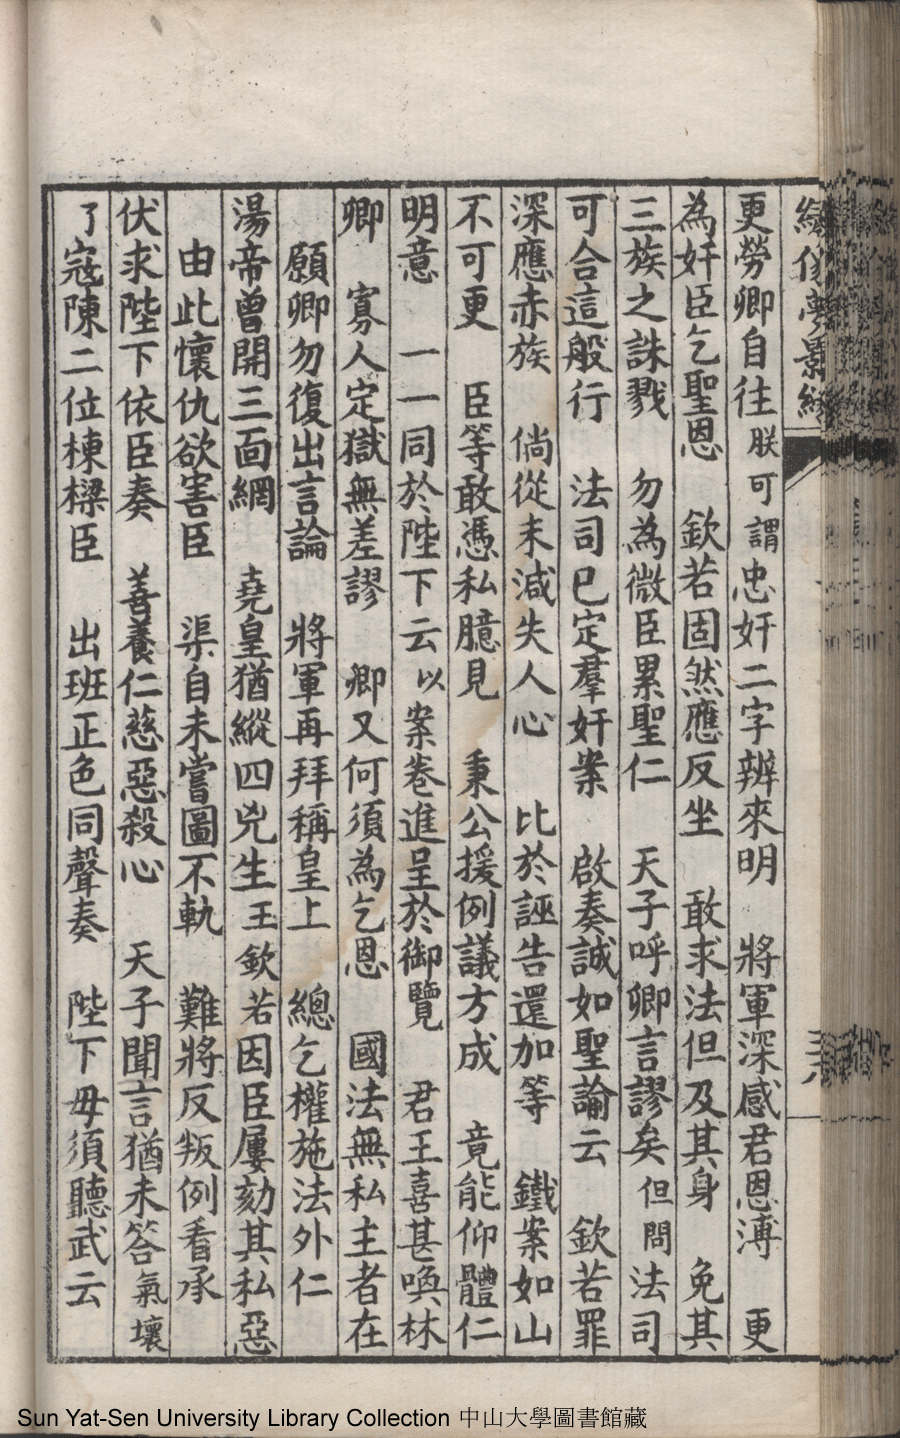 更勞卿自往朕可謂忠奸二字辨來明　將軍深感君恩溥　更
為奸臣乞聖恩　欽若固然應反坐　敢求法但及其身　免其
三族之誅戮　勿為微臣累聖仁　天子呼卿言謬矣但問法司
可合這般行　法司已定羣奸案　啟奏誠如聖論云　欽若罪
深應赤族　倘從末減失人心　比於誣告還加等　鐵案如山
不可更　臣等敢憑私臆見　秉公援例議方成　竟能仰體仁
明意　一一同於陛下云以案卷進呈於御覽　君王喜甚喚林
卿　寡人定獄無差謬　卿又何須為乞恩　國法無私主者在
願卿勿復出言論　將軍再拜稱皇上　總乞權施法外仁
湯帝曾開三面網　堯皇猶縱四兇生王欽若因臣屢劾其私惡
由此懷仇欲害臣　渠自未嘗圖不軌　難將反叛例看承
伏求陛下依臣奏　善養仁慈惡殺心　天子聞言猶未答氣壞
了寇陳二位棟樑臣　出班正色同聲奏　陛下毋須聽武云
Sun Yat-Sen University Library Collection 中山大學圖書館藏